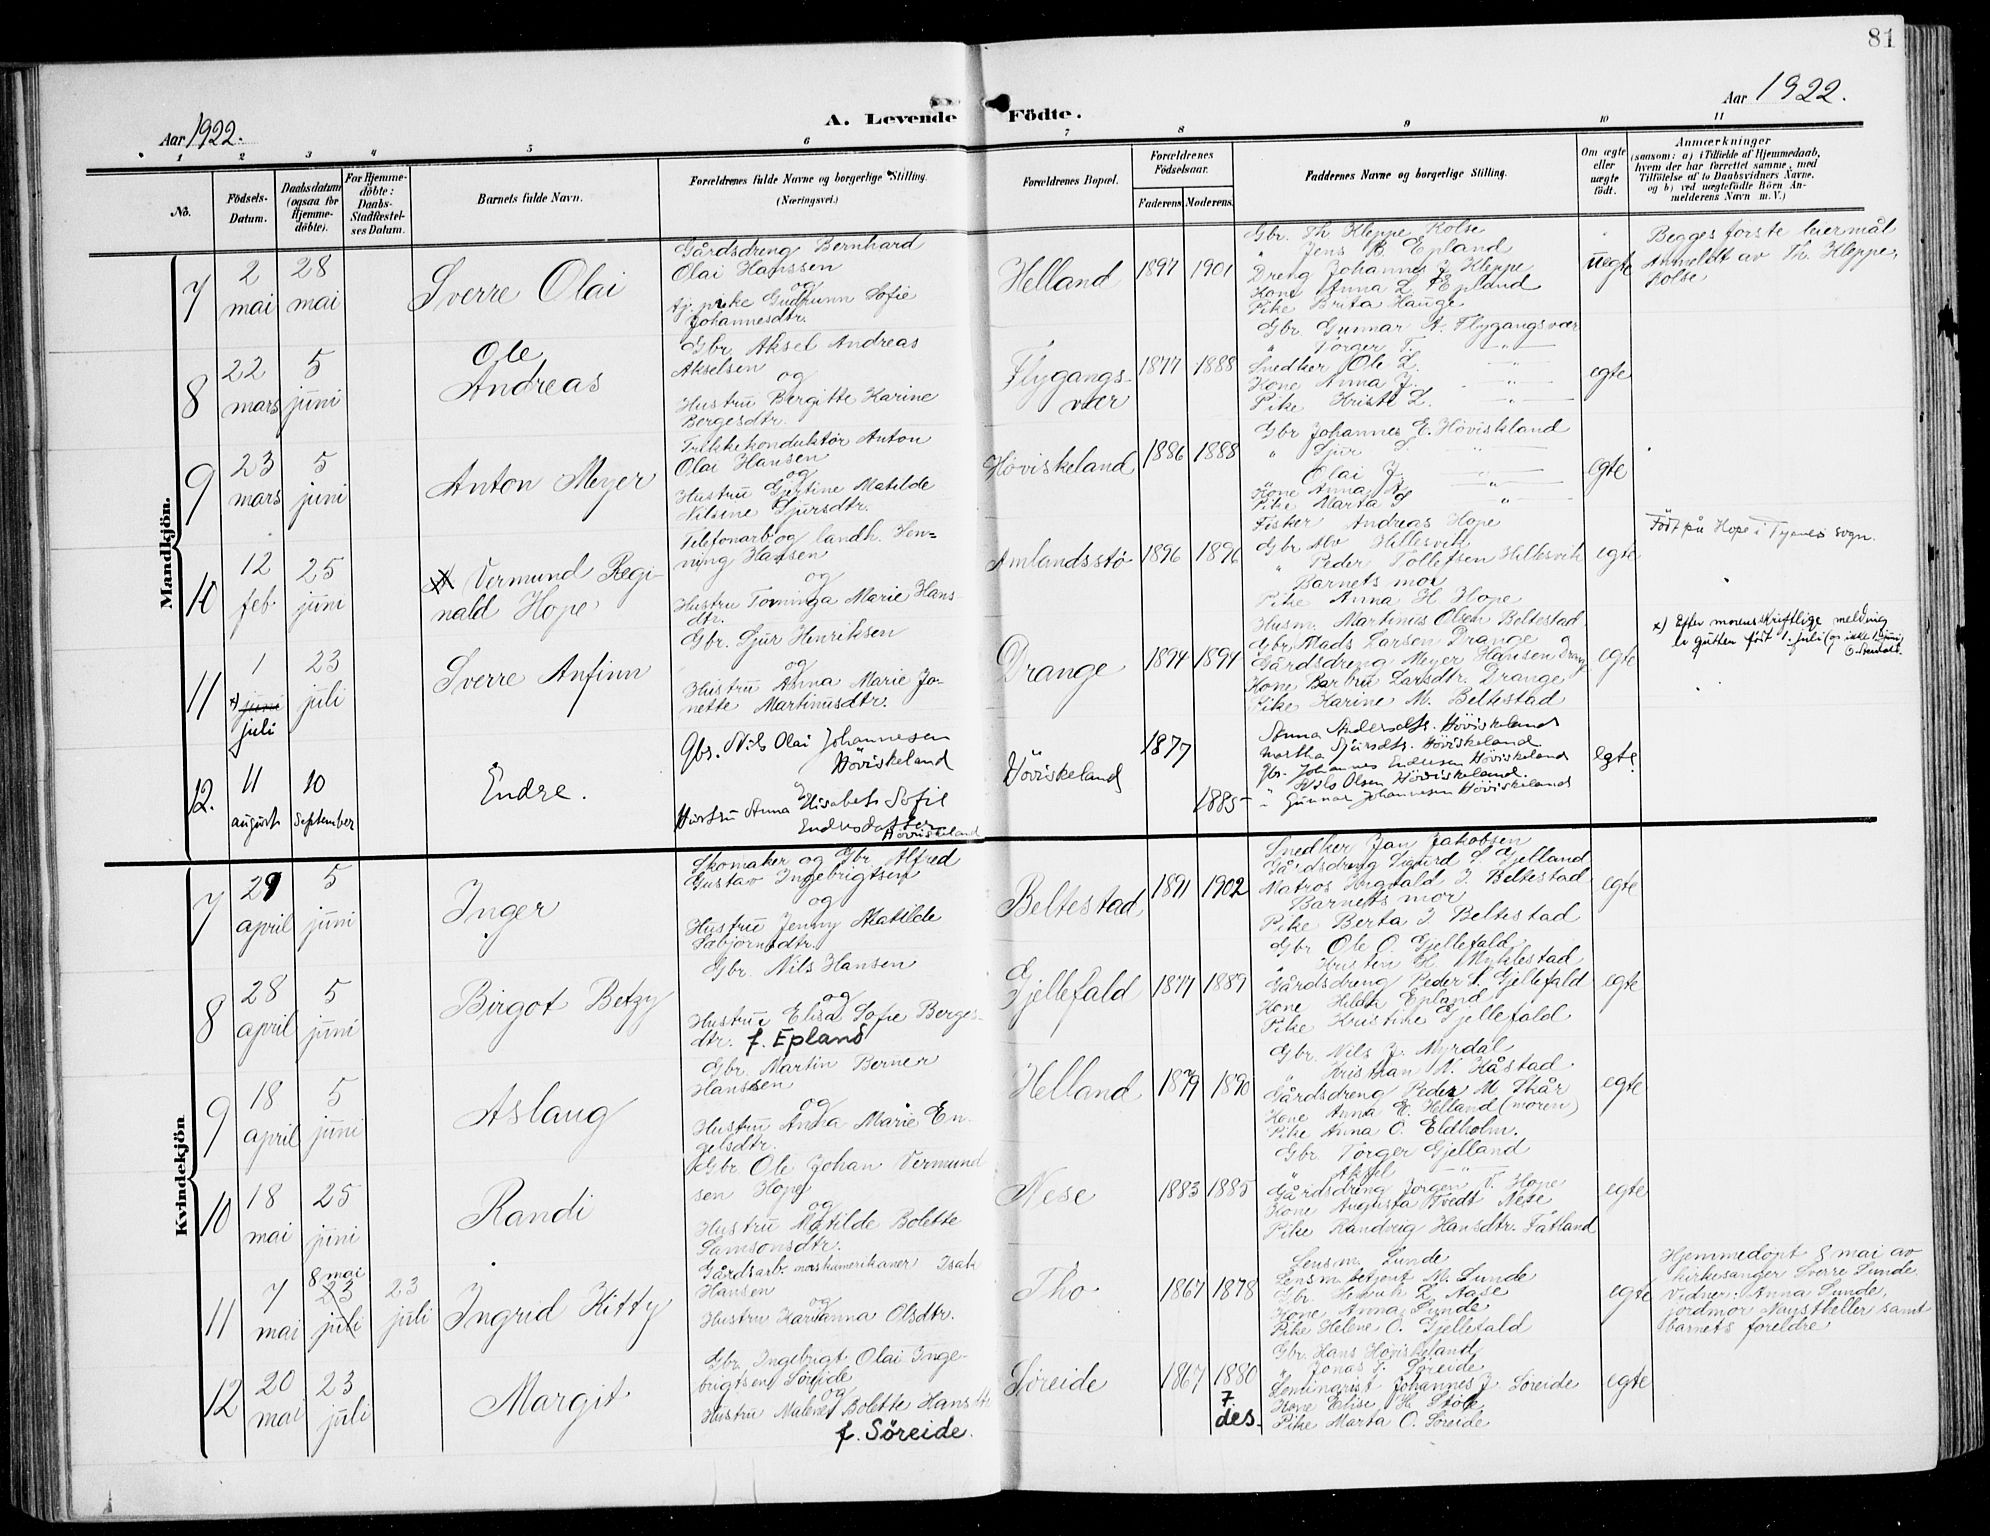 81
Aar 1922.
A. Levende Födte.
Aar 1922.
1 2 3 4 5 6 7 8 9 10 11
No.
Födsels-Datum.
Daabsdatum (ogsaa for Hjemme-döbte).
For Hjemme-döbte: Daabs-Stadfæstel-ses Datum.
Barnets fulde Navn.
Forældrenes fulde Navne og borgerlige Stilling. (Næringsvei.)
Forældrenes Bopæl.
Forældrenes Födselsaar.
Faderens. Moderens.
Faddernes Navne og borgerlige Stilling.
Om ægte eller uægte födt.
Anmærkninger
(saasom: a) i Tilfælde af Hjemmedaab,
hvem der har forrettet samme, med
Tilföielse af to Daabsvidners Navne.
og b) ved uægtefödte Börn An-
melderens Navn m. V.)
Mandkjön.
7
2 mai
28 mai
Sverre Olai
Gårdsdreng Bernhard
Olai Hanssen
og
pike Gudrunn Sofie
Johannesdtr.
Helland
1897 1901
Gbr. Th Kleppe Kolse
" Jens B. Epland
Dreng Johannes J. Kleppe
Kone Anna L Epland
Pike Brita Hauge
uegte
Begges første leiermål
Anmeldt av Th. Kleppe,
Kolse
8
22 mars
5 juni
Ole
Andreas
Gbr. Aksel Andreas
Akselsen
og
Hustru Bergitte Karine
Bergesdtr.
Flygangs-
vær
1877 1888
Gbr. Gunnar A. Flygangsvær
" Torger T. — " —
Snedker Ole L. — " —
Kone Anna J. — " —
Pike Kristi L. — " —
egte
9
23 mars
5 juni
Anton Meyer
Trikkekonduktør Anton
Olai Hansen
og
Hustru Gurine Matilde
Nilsine Sjursdtr.
Höviskeland
1886 1888
Gbr Johannes E. Höviskland
" Sjur S. — " —
Olai J. — " —
Kone Anna A. — " —
Pike Marta S — " —
egte
10
12 feb.
25 juni
Vermund Regi-
nald Hope
Telefonarb og landh. Hen-
ning Hansen
og
Hustru Tominga Marie Hans-
dtr.
Amlandsstø
1896 1896
Fisker Andreas Hope
Gbr. Hillesvik
" Peder Tollefsen Hillesvik
Barnets mor
Pike Anna H Hope
egte
Født på Hope i Tysnes sogn.
11
1 x) juni juli
23 juli
Sverre Anfinn
Gbr. Sjur Henriksen
og
Hustru Anna Marie Jo-
nette Martinusdtr.
Drange
1894 1894
Husm. Martinus Olsen Beltestad
Gbr. Mads Larsen Drange
Gårdsdreng Meyer Hansen Drange
Kone Barbru Larsdtr. Drange
Pike Karine M. Beltestad
egte
x) Efter morens skriftlige melding
er gutten født 1. juli (og ikke 1 juni)
12.
11 august
10 september
Endre.
Gbr. Nils Olai Johannesen
Höviskeland
Hustru Anna Elisabeth Sofie
Endresdatter
Höviskeland
Höviskeland
1877 1885
Anna Andersdtr. Höviskeland
Martha Sjursdtr. Höviskeland
Gbr. Johannes Endresen Höviskeland
" Nils Olsen Höviskeland.
" Gunnar Johannesen Höviskeland
egte.
Kvindekjön
7
29 april
5 juni
Inger
Skomaker og Gbr. Alfred
Gustav Ingebrigtsen
og
Hustru Jenny Matilde
Sæbjørnsdtr.
Beltestad
1891 1902
Snedker Jan Jakobsen
Gårdsdreng Sigurd S. Gjelland
Matros Ingvald I. Beltestad
Barnets mor
Pike Berta I Beltestad
egte
8
28 april
5 juni
Birgot Betzy
Gbr. Nils Hansen
og
Hustru Elisa Sofie Berges-
dtr. f. Epland
Gjellefald
1877 1889
Gbr Ole O. Gjellefald,
" Kristen H. Myklestad
Gårdsdreng Peder N. Gjellefald
Kone Hilda Epland
Pike Kristine Gjellefald
egte
9
18 april
5 juni
Aslaug
Gbr. Martin Berner
Hanssen
og
Hustru Anna Marie En-
gelsdtr.
Helland
1879 1890
Gbr. Nils J. Myrdal
" Kristian N. Håstad
Gårdsdreng Peder M. Skår
Kone Anna E. Helland (moren)
Pike Anna O. Eldholm.
egte
10
18 mai
25 juni
Randi
Gbr Ole Johan Vermund
sen Hope
og
Hustru Matilde Bolette
Samsonsdtr.
Nese
1883 1885
Gbr. Torger Gjelland
" Aksel — " —
Gårdsdreng Jørgen V. Hope
Kone Augusta Tvedt Nese
Pike Randveig Hansdtr. Tåtland
egte
11
7 mai
8 mai 23 juli
23 juli
Ingrid Kitty
Gårdsarb. norskamerikaner Isak
Hansen
og
Hustru Karianna Olsdtr.
Tho
1867 1878
Lensm. Lunde
Lensm. betjent M. Lunde
Gbr. Henrik L. Aase
Kone Anna Lunde
Pike Helene O. Gjellefald
egte
Hjemmedøpt 8 mai av
kirkesanger Sverre Lunde.
Vidner: Anna Lunde,
jordmor Naustheller samt
barnets foreldre
12
20 mai
23 juli
Margit
Gbr. Ingebrigt Olai Inge-
brigtsen Søreide
og
Hustru Malene Bolette Hansdtr
f. Söreide.
Søreide
1867 1880
7. des.
Gbr. Hans Höviskeland
" Jonas T. Søreide
Seminarist Johannes J. Søreide
Kone Elise H Støle
Pike Marta O. Søreide
egte